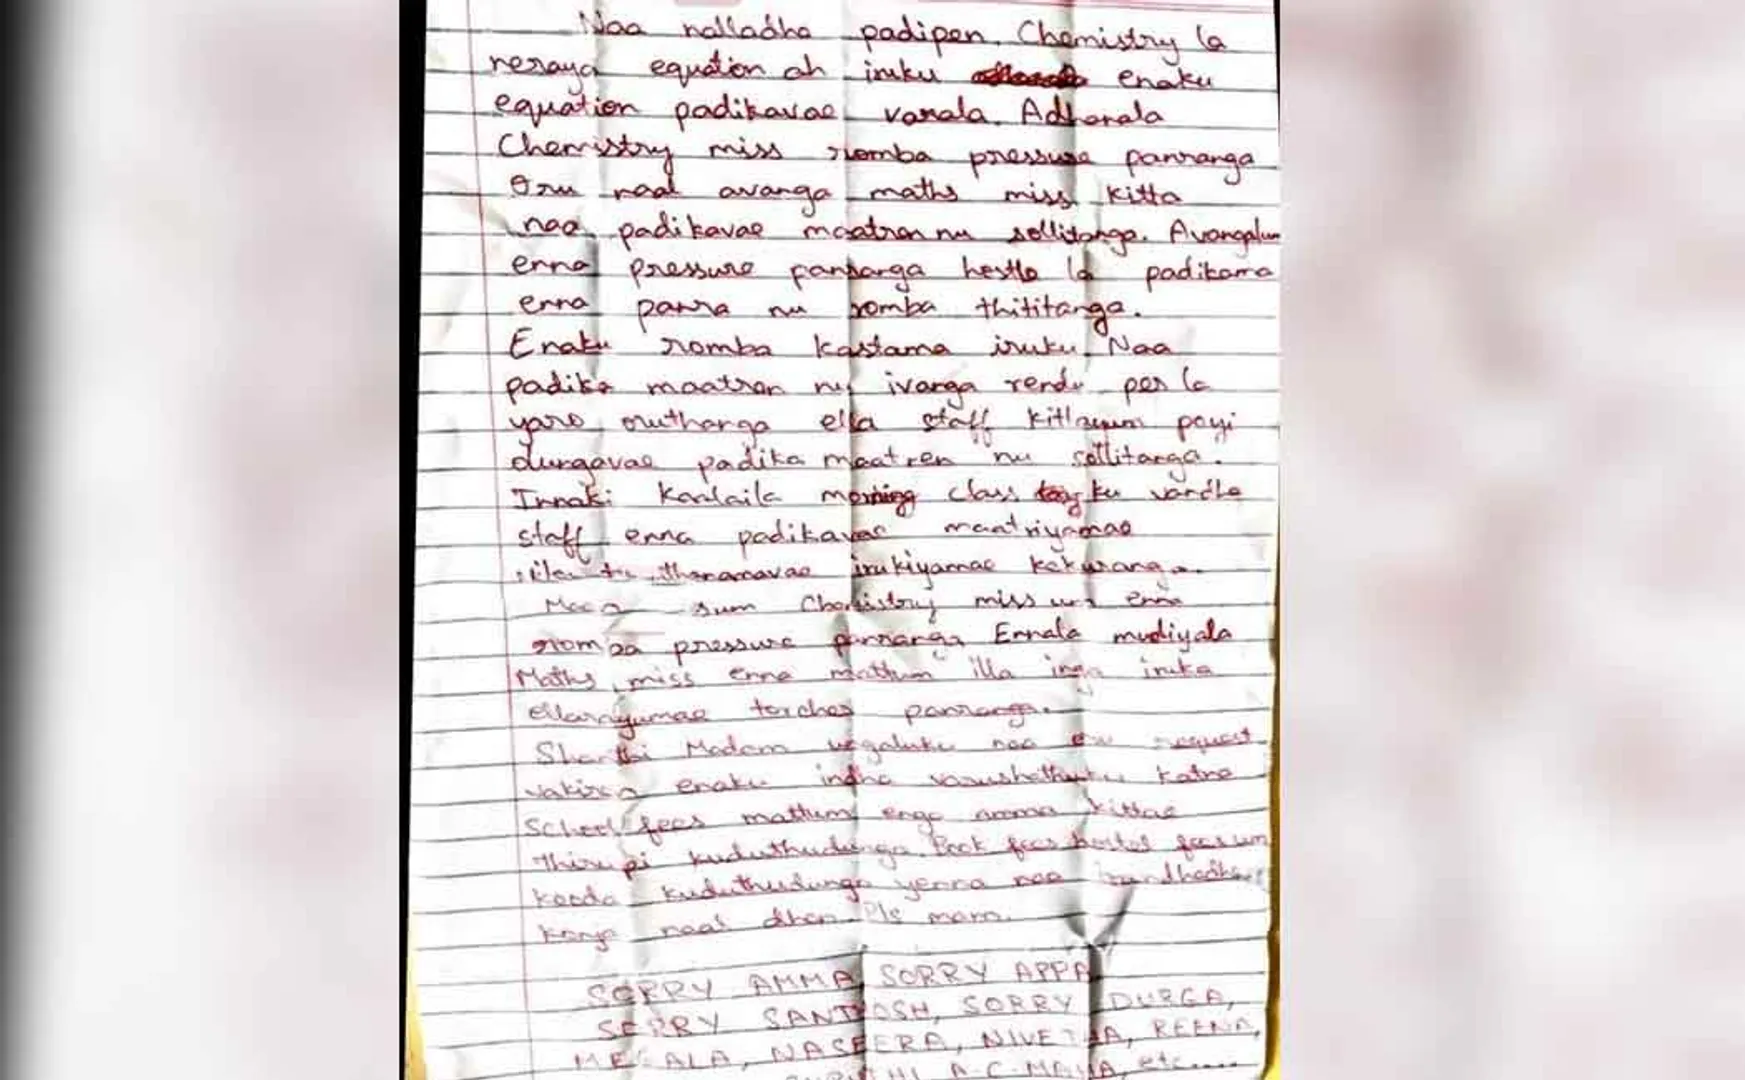 Naa nalladha padipen. Chemistry la
neraya equation ah iruku enaku
equation padikavae varala. Adhanala
Chemistry miss romba pressure panranga
Oru naal avanga maths miss kitta
naa padikavae maatren nu sollitanga. Avangalum
enna pressure panranga hostle la padikama
enna panra nu romba thititanga.
Enaku romba kastama iruku. Naa
padika maatren nu ivanga rendu per la
yaro oruthanga ella staff kitlayum poyi
durgavae padika maatren nu sollitanga.
Innaki kaalaila morning class ku vandha
staff enna padikavae maatriyamae
irukiyamae kekuranga.
Chemistry miss enna
romba pressure panranga Ennala mudiyala
Maths miss enna mattum illa inga iruka
ellarayumae torcher panranga.
Shanthi Madam ungaluku naa oru request
vakiren enaku indha varushathuku katne
School fees mattum enga amma kittae
thirupi kuduthudunga. Book fees hostel feesum
kooda kuduthudunga yenna naa irundhadhu
konja naal dhan. Pls mam.
SORRY AMMA, SORRY APPA
SORRY SANTHOSH, SORRY DURGA,
MEGALA, NASEERA, NIVETHA, REENA,
A.C. MAHA, etc....